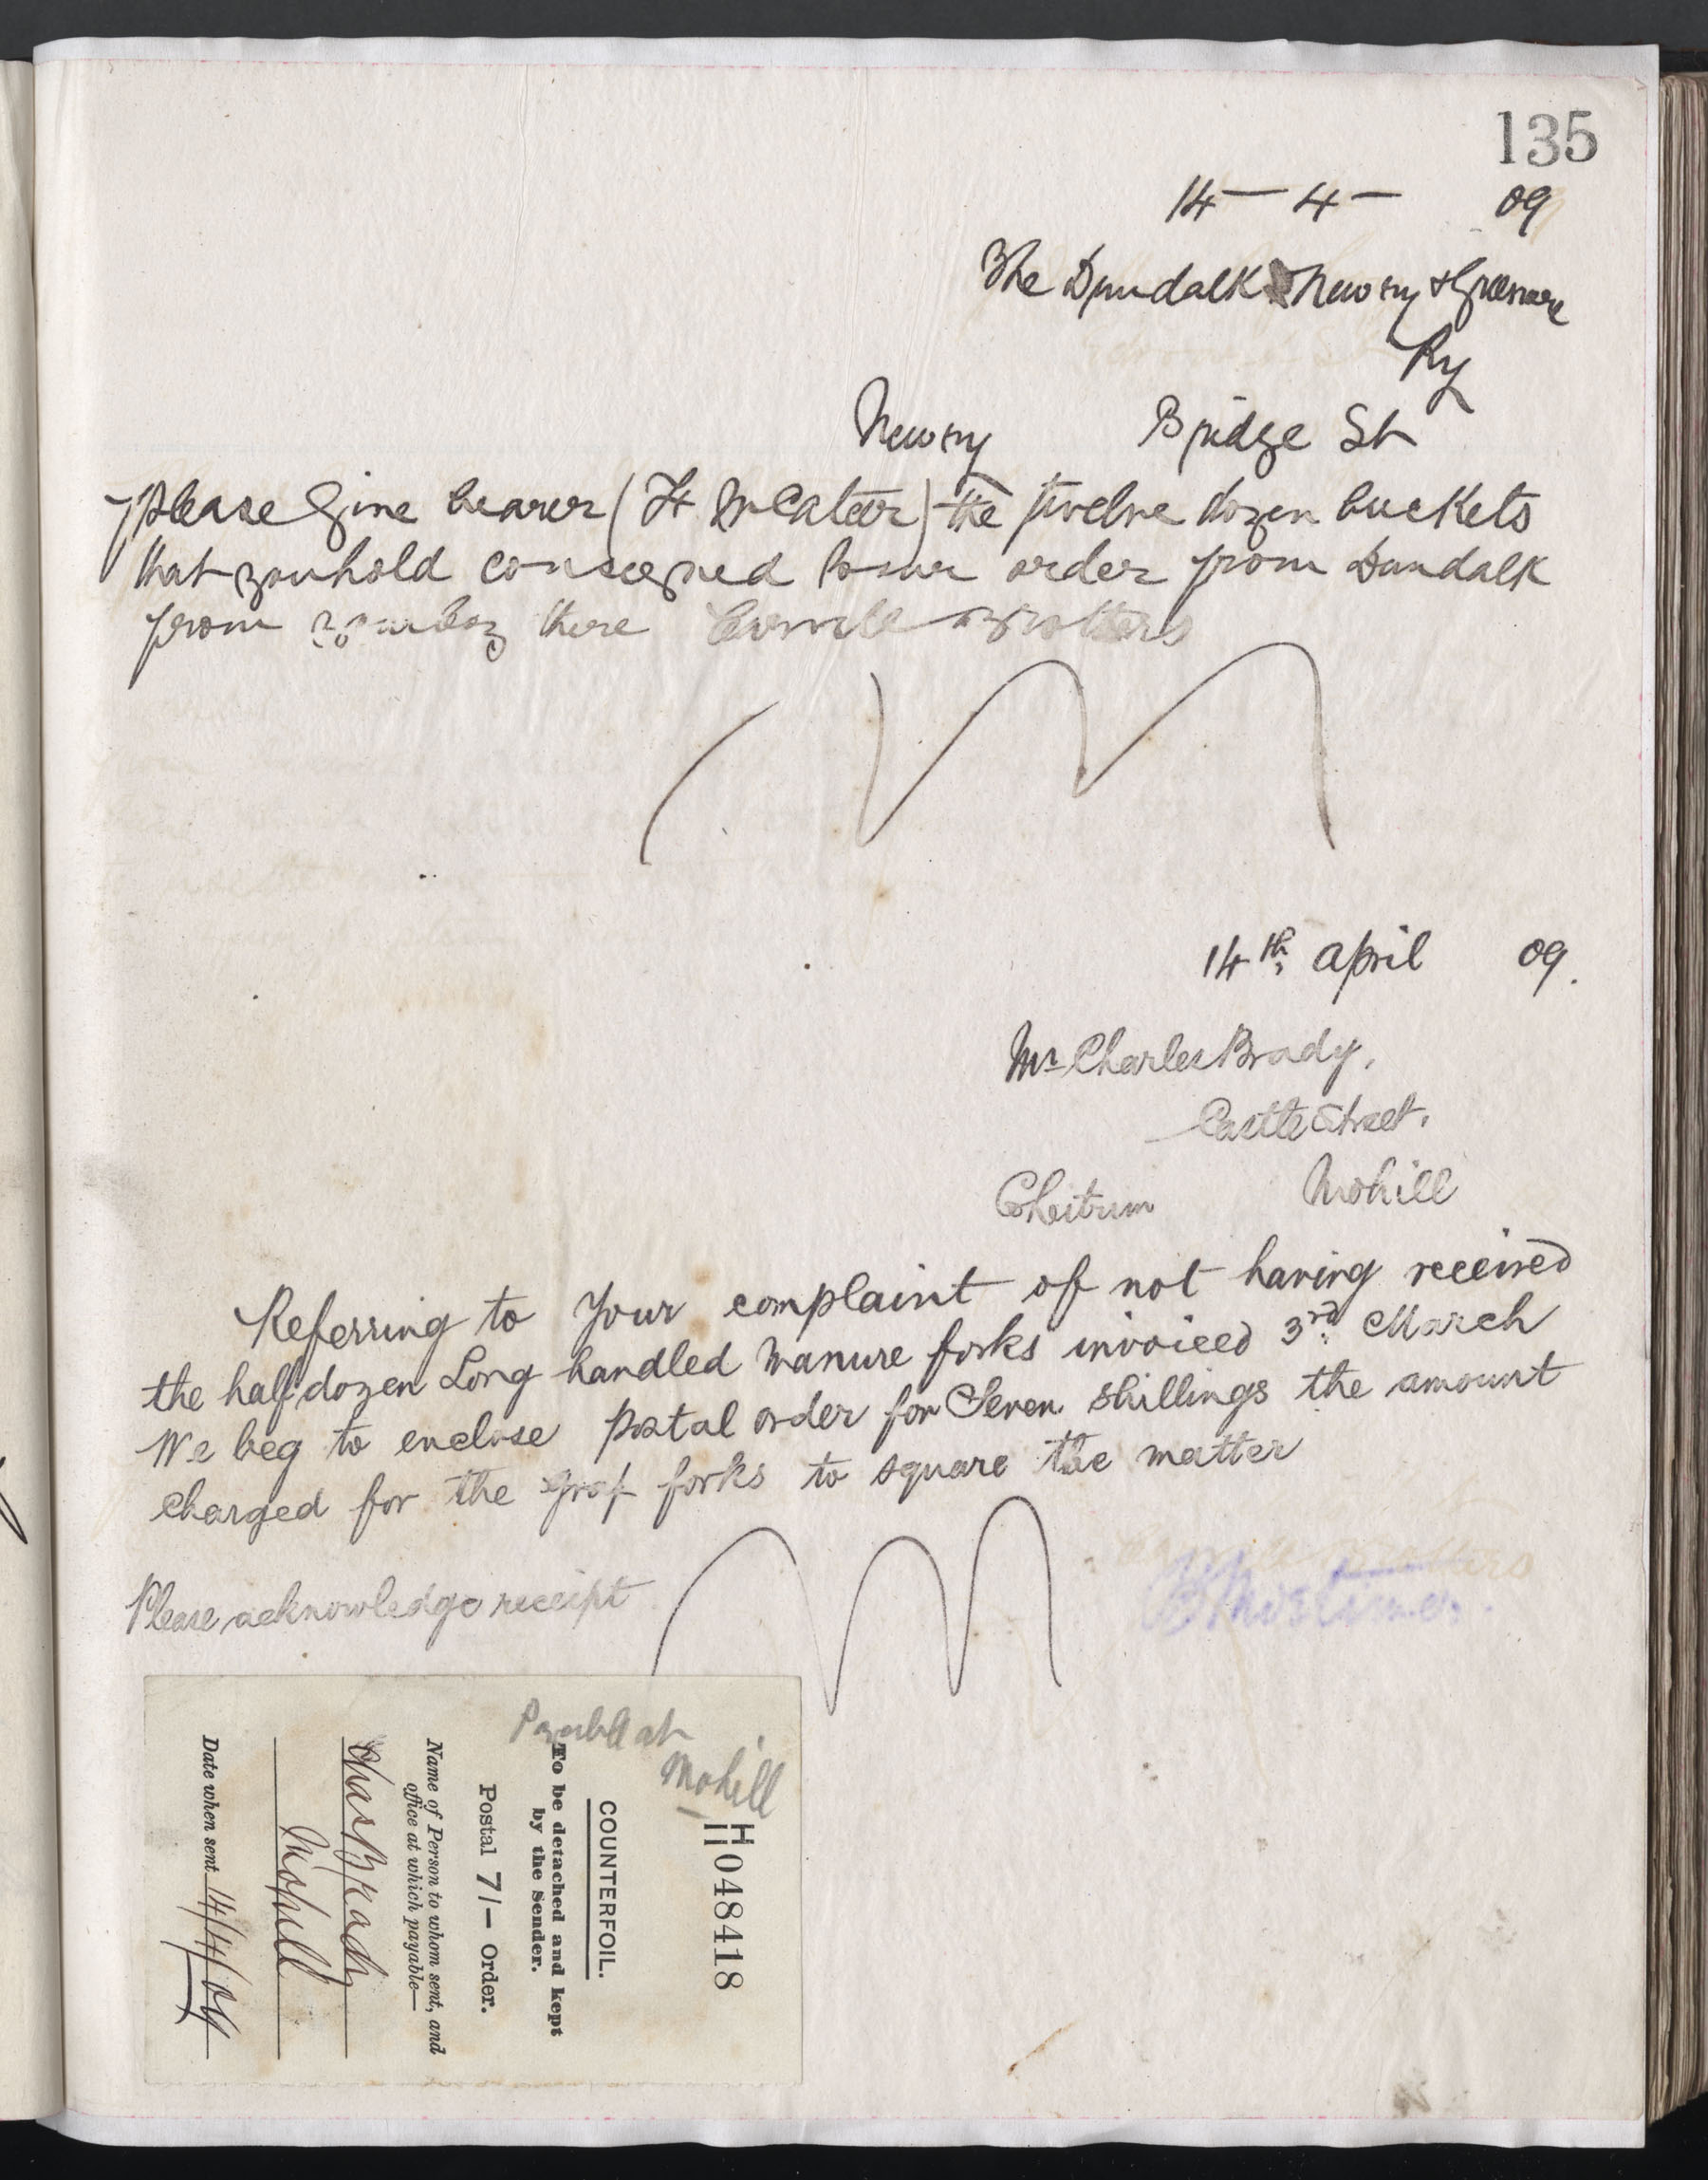 135
14 - 4 - 09
The Dundalk Newry & Greenore
Ry
Newry Bridge St
Please Give bearer (H McAteer) the twelve dozen buckets
that you hold consigned to our order from Dundalk
from there Carvill Brothers
14th April 09.
Mr Charles Brady,
Castle Street,
Co Leitrim Mohill
Referring to Your complaint of not having received
the half dozen Long handled Manure forks invoiced 3rd March
We beg to enclose postal order for Seven shillings the amount
charged for the forks to square the matter
Carvill Brothers
Please acknowledge receipt
Payable at
Mohill
H
11 048418
COUNTERFOIL.
To be detached and kept
by the Sender.
Postal 7/- Order.
Name of Person to whom sent, and
office at which payable—
Chas Brady
Mohill
Date when sent 14/4/09